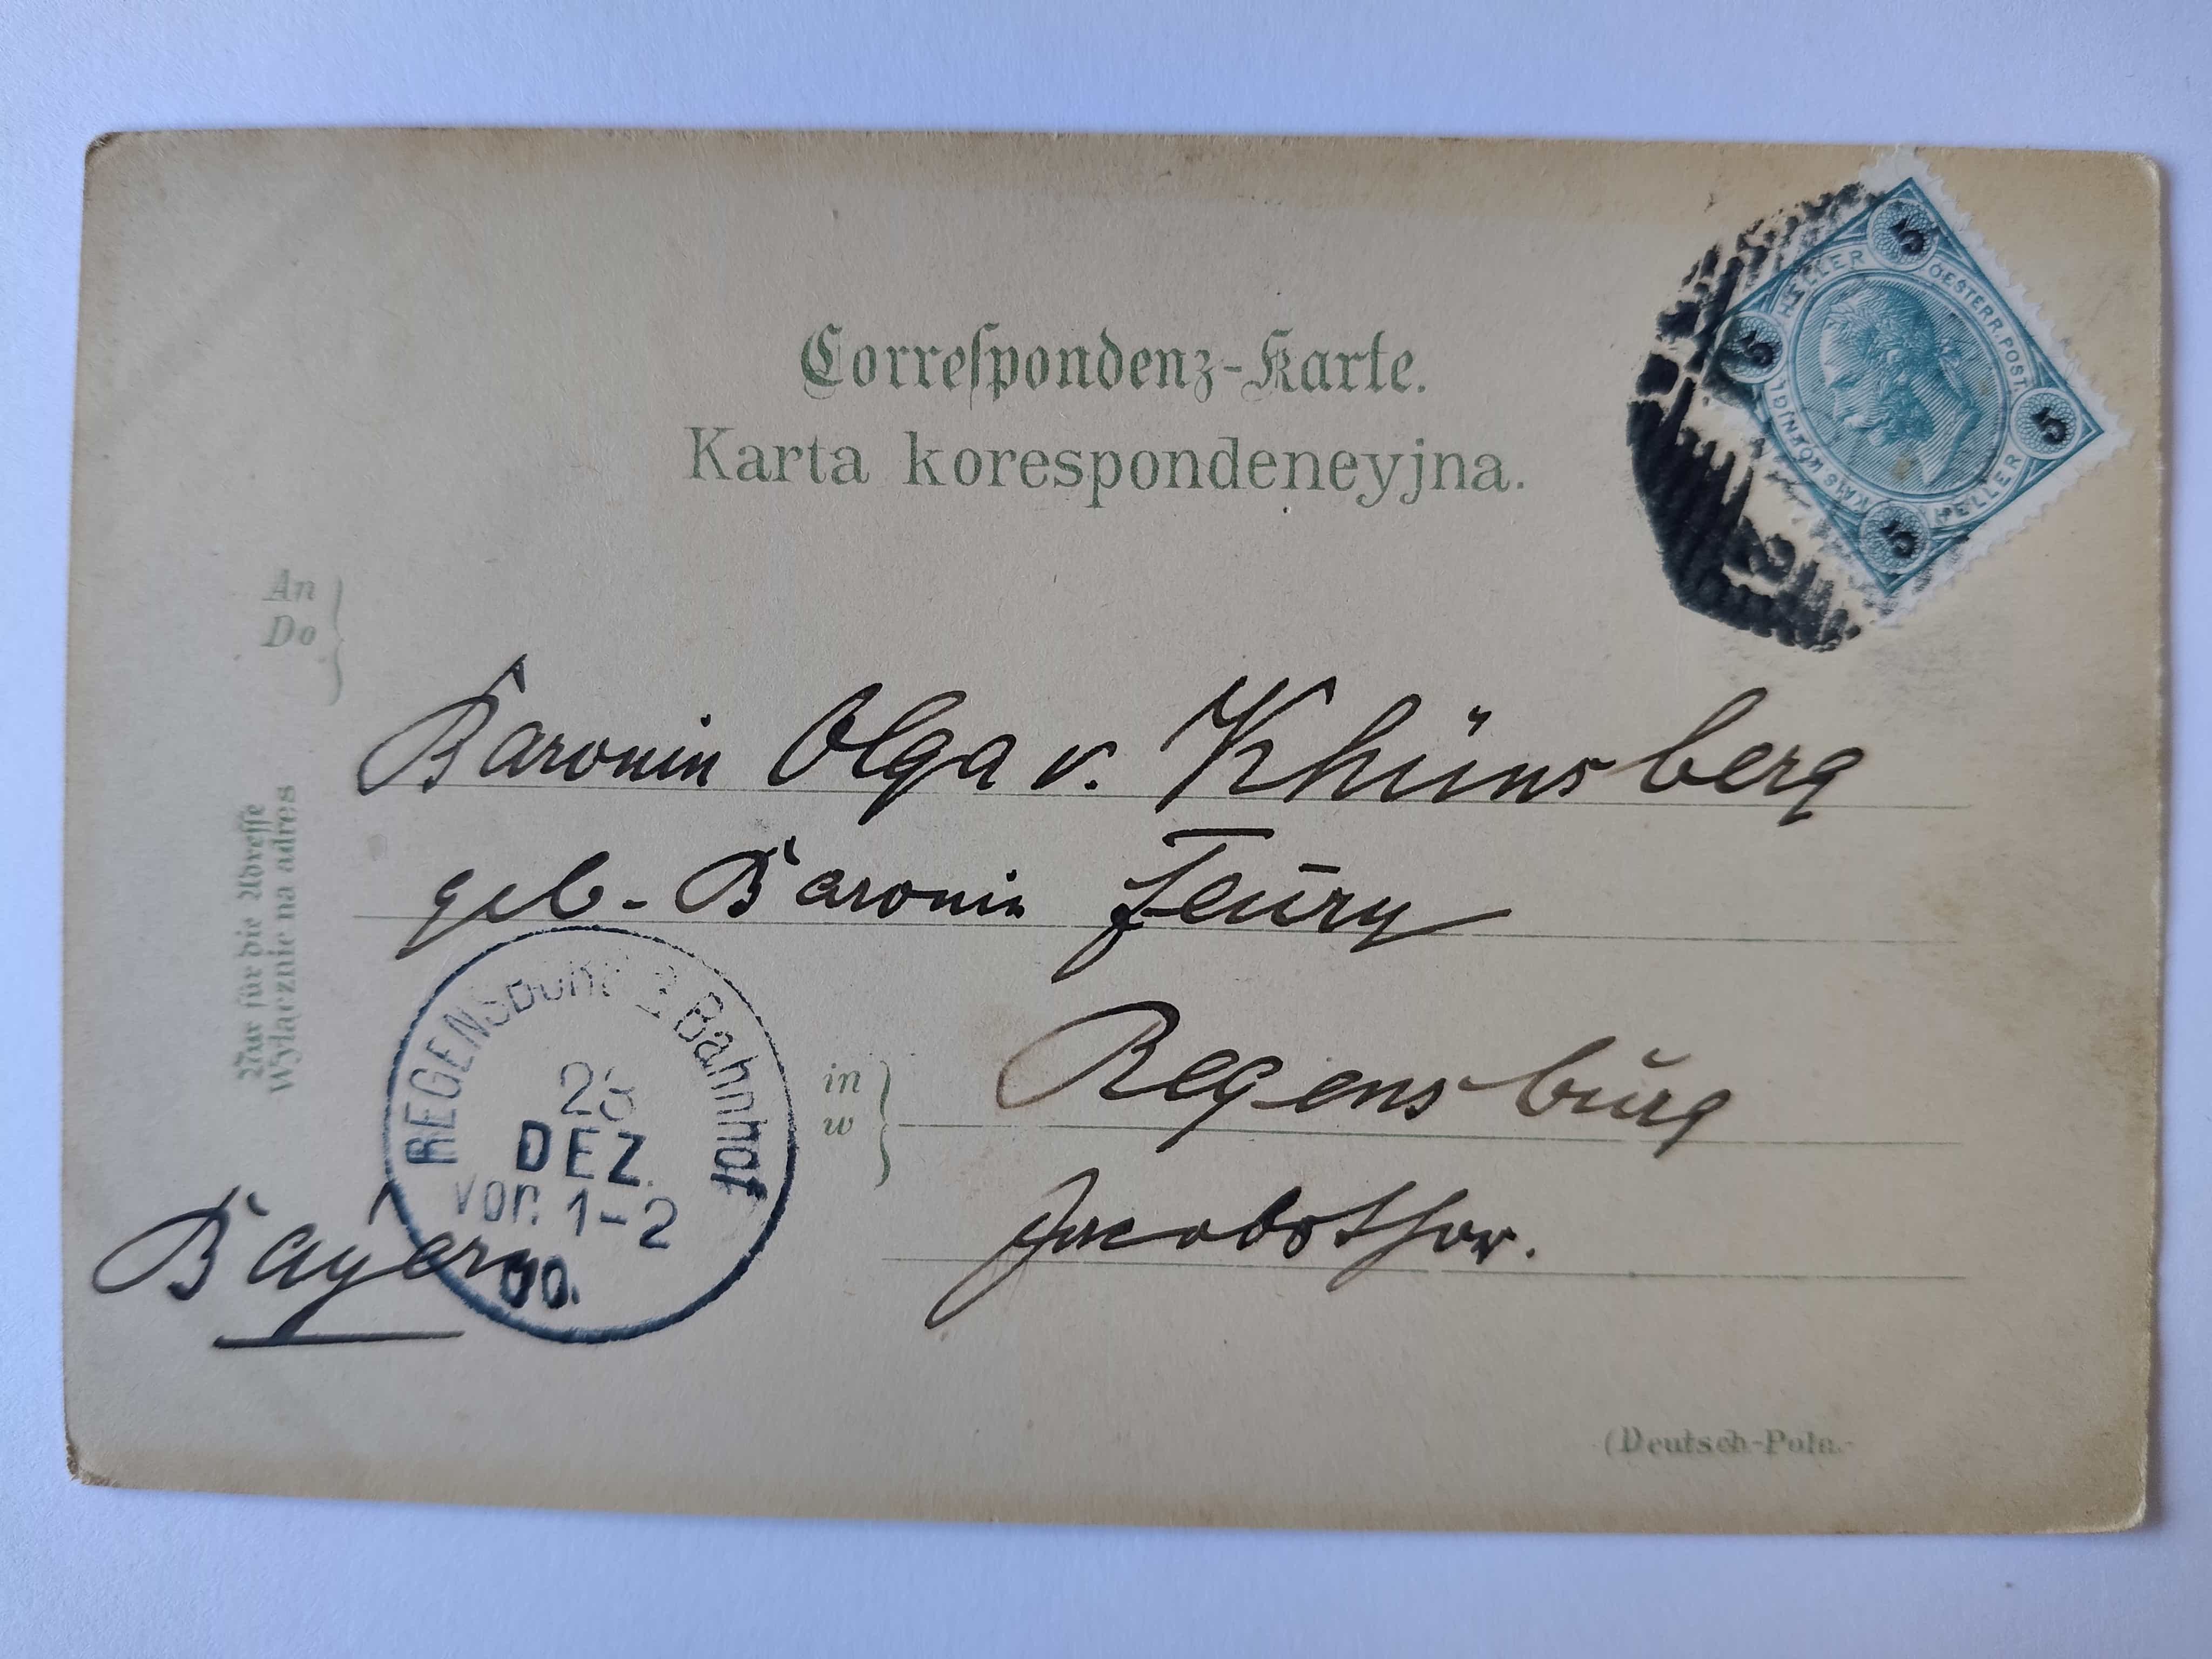 Correspondenz-Karte.
Karta korespondeneyjna.
5
HELLER
OESTERR. POST.
5
5
KAIS. KÖNIGL.
HELLER
5
An
Do
Baronin Olga v. Khünsberg
geb. Baronin Feury
Nur für die Adresse
Wyłacznie na adres
REGENSBURG 2 Bahnhof
23
DEZ.
vor. 1-2
00.
in
w
Regensburg
Jacobsthor.
Bayern
(Deutsch-Poln.-